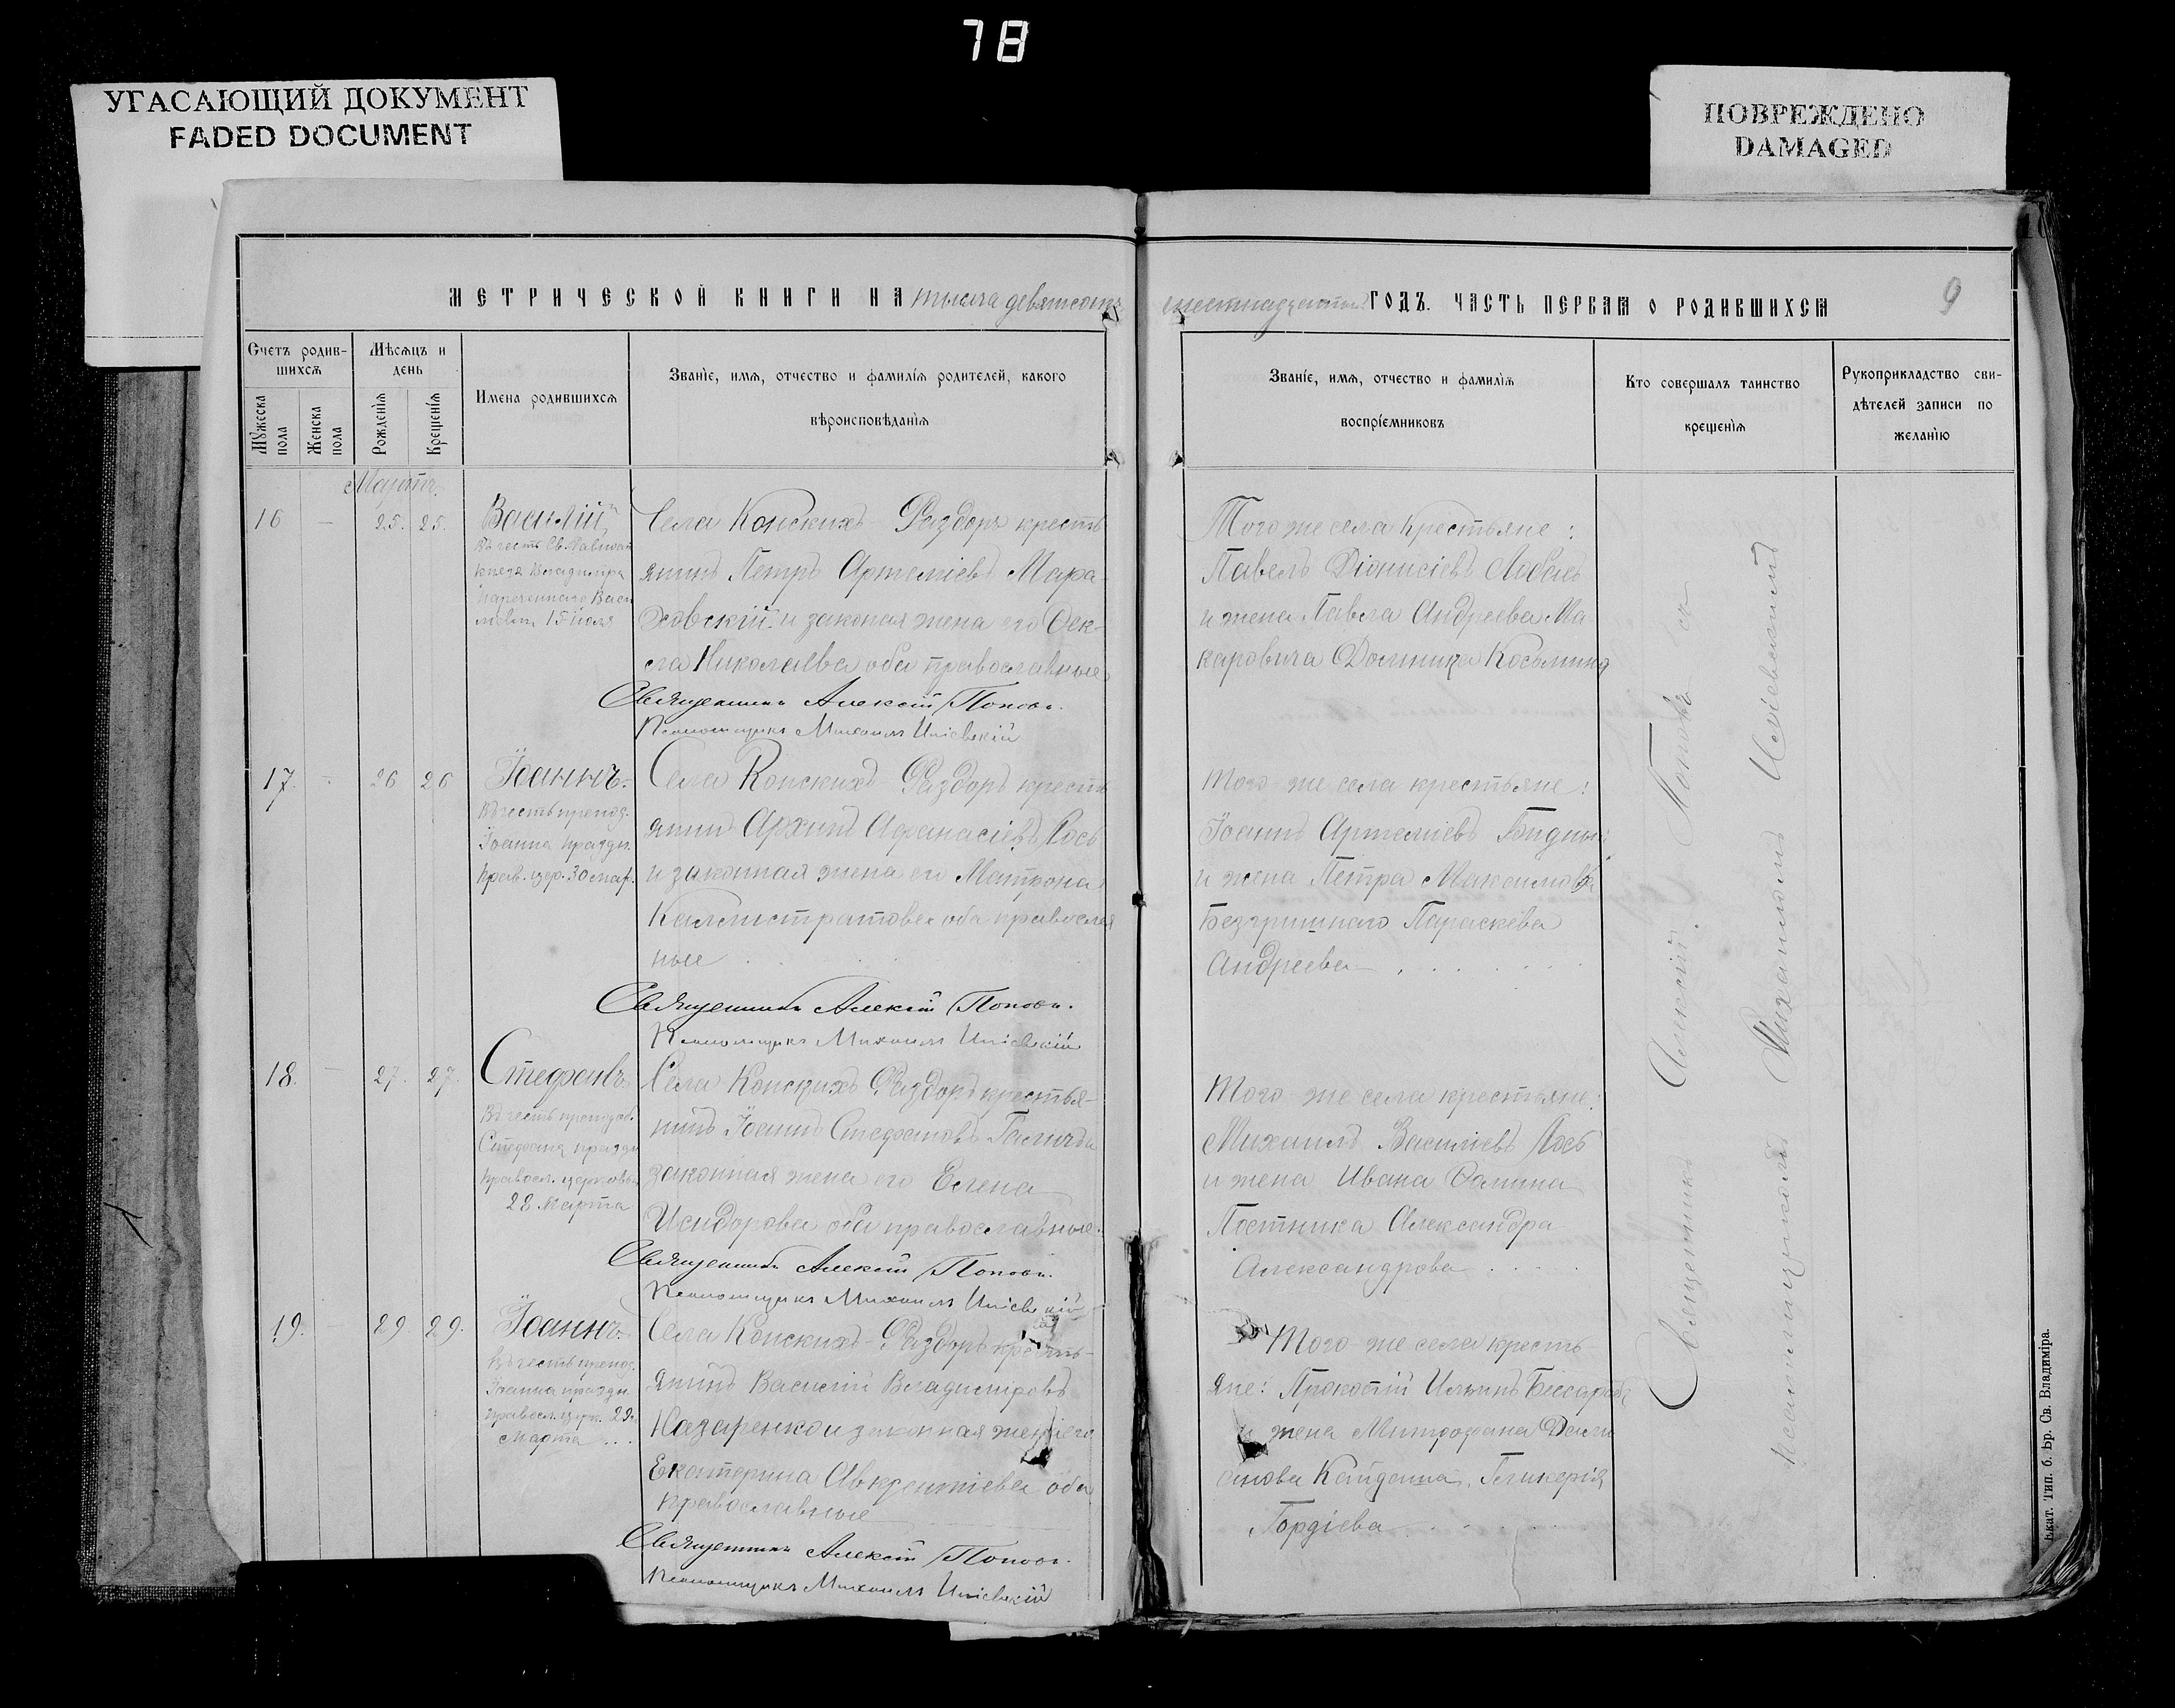 78
УГАСАЮЩИЙ ДОКУМЕНТ
FADED DOCUMENT
ПОВРЕЖДЕНО
DAMAGED
МЕТРИЧЕСКОЙ КНИГИ НА тысяча девятсотъ
шестнадцатый ГОДЪ. ЧАСТЬ ПЕРВАЯ О РОДИВШИХСЯ
9
Счетъ родив-
шихся
Мѣсяцъ и
день
Мужеска
пола
Женска
пола
Рожденія
Крещенія
Имена родившихся
Званіе, имя, отчество и фамилія родителей, какого
вѣроисповѣданія
Званіе, имя, отчество и фамилія
воспріемниковъ
Кто совершалъ таинство
крещенія
Рукоприкладство сви-
дѣтелей записи по
желанію
Мартъ.
16 — 25. 25.
Василій
Въ честь Св. Равноап
князя Владиміра
нареченнаго Васи
15 іюля
Села Конскихъ Раздоръ кресть
янинъ Петръ Артеміевъ Мара-
ховскій и законая жена его Фек-
ла Николаева оба православные
Священникъ Алексій Поповъ.
Псаломщикъ Михаилъ
Того же села крестьяне:
Павелъ Діонисіевъ
и жена Павла Андреева Ма
каровича Домника
17. - 26 26
Іоаннъ.
Въ честь препод.
Іоанна праздн.
прав. цер. 30 мар.
Села Конскихъ Раздоръ кресть
янинъ Архипъ Афанасіевъ Лось
и законная жена его Матрона
Каллистратова оба православ
ные
Священникъ Алексій Поповъ.
Псаломщикъ Михаилъ
Того же села крестьяне:
Іоаннъ Артеміевъ
и жена Петра Максимова
Безгришнаго Параскева
Андреева
18. — 27. 27.
Стефанъ
Въ честь преподоб.
Стефана праздн
правосл. церковью
28 Марта
Села Конскихъ Раздоръ крестья-
нинъ Іоаннъ Стефановъ
законная жена его Елена
Исидорова оба православные.
Священникъ Алексій Поповъ.
Псаломщикъ Михаилъ
Того же села крестьяне:
Михаилъ Василіевъ Лось
и жена Ивана Фомина
Постника Александра
Александрова
19. — 29. 29.
Іоаннъ
Въ честь препод.
Іоанна праздн.
правосл. церк. 29
Марта
Села Конскихъ Раздоръ кресть-
янинъ Василій Владиміровъ
Назаренко и законная жена его
Екатерина Авксентіева оба
православные
Священникъ Алексій Поповъ.
Псаломщикъ Михаилъ
Того же села кресть
яне: Прокопій Ильинъ
и жена Митрофана
Гликерія
Гордіева
Священникъ Алексій Поповъ съ
псаломщикомъ Михаиломъ
Екат. Тип. б. Бр. Св. Владиміра.